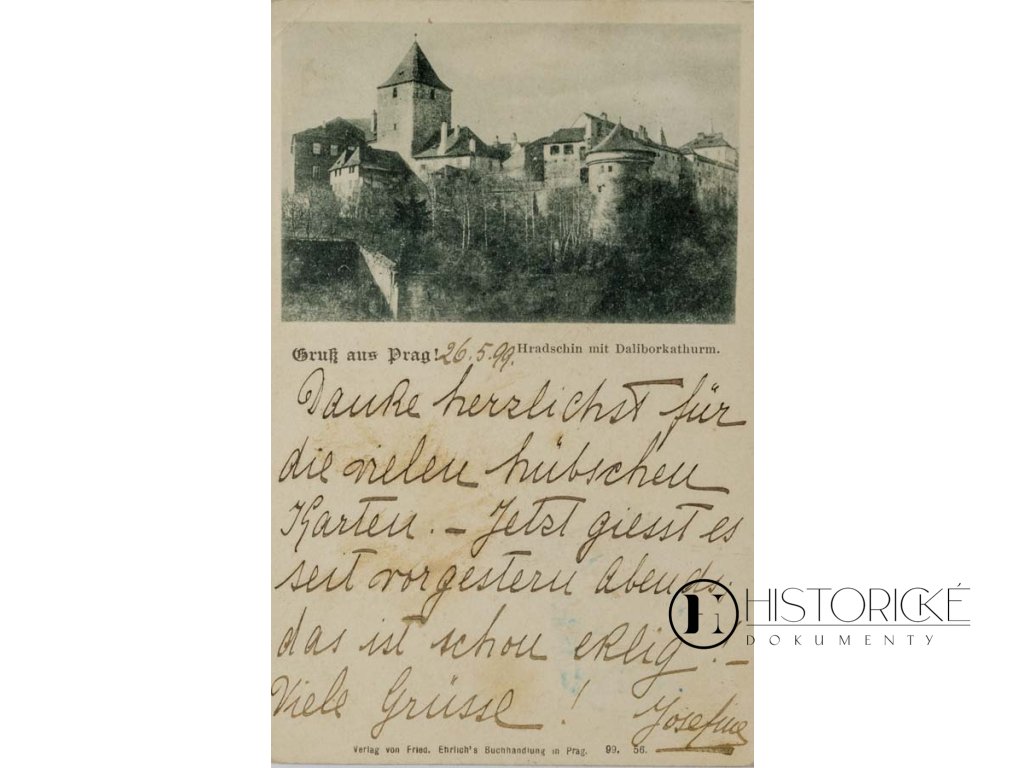 Gruß aus Prag! 26.5.99. Hradschin mit Daliborkathurm.
Danke herzlichst für
die vielen hübschen
Karten. – Jetzt giesst es
seit vorgestern Abends.
das ist schon eklig! –
Viele Grüsse! Josefine
Verlag von Fried. Ehrlich's Buchhandlung in Prag. 99. 56.
HISTORICKÉ
DOKUMENTY